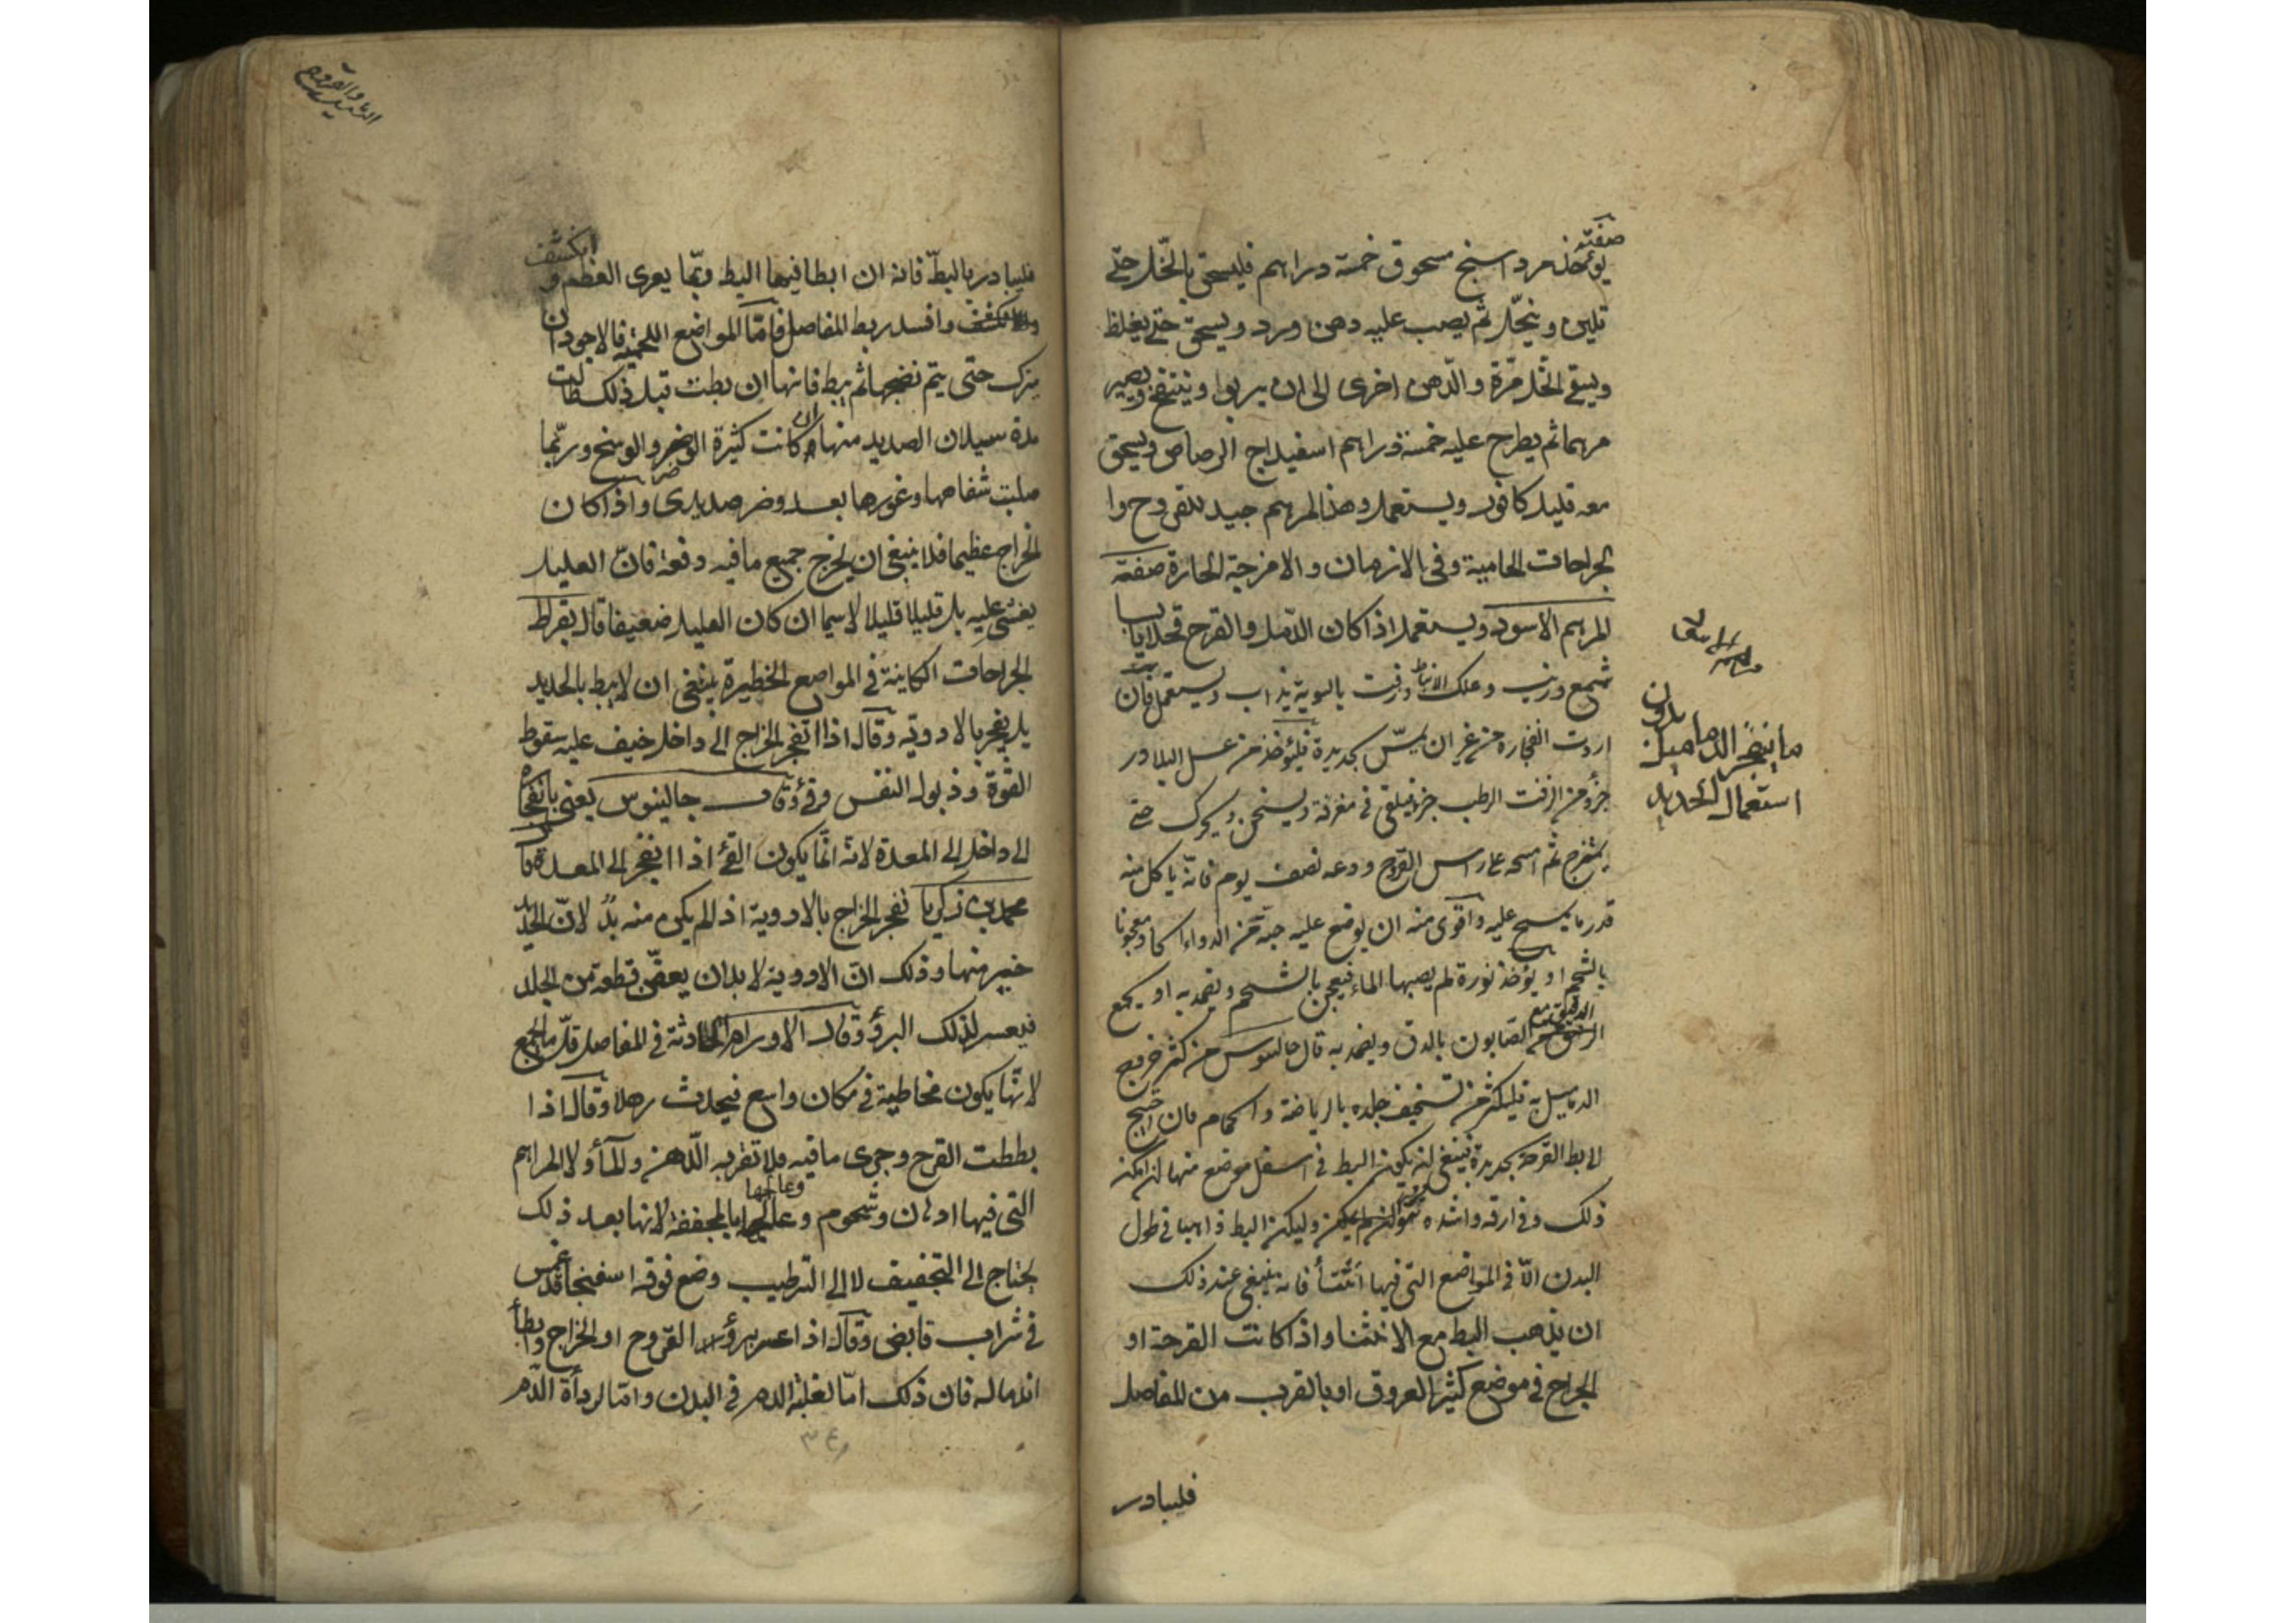 صفته
يؤخذ مرداسنج مسحوق خمسة دراهم فليسحق بالخّل حتّى
تلين وينحّل ثم يصب عليه دهن ورد ويسحق حتى يغلظ
ويسقى الخل مرّة والدّهن اخرى الى ان يربوا وينتفخ ويصير
مرهما ثم يطرح عليه خمسة دراهم اسفيداج الرصاص ويسحق
معه قليل كافور ويستعمل وهذا المرهم جيد للقروح وا
لجراحات الحامية وفى الازمان والامزجة الحارة صفة
المرهم الاسود ويستعمل اذا كان الدّمل والقرح
شمع وزيت وعلك الانباط وزفت بالسوية يذاب ويستعمل فان
اردت انفجاره من غير ان يمسّ بحديدة فليؤخذ من عسل البلادر
جزؤ ومن الزفت الرطب جزؤ فيلقى فى مغرفة ويسخن ويحرك حتى
يمتزج ثم امسحه على راس القرح ودعه نصف يوم فانّه ياكل منه
قدر ما يمسح عليه واقوى منه ان يوضع عليه حبّة من الدواء الحاد معجونا
بالشحم او يؤخذ نورة لم يصبها الماء فيعجن بالشحم ويضمد به او يجمع
الصابون بالدق ويضمد به قال جالينوس من كثر خروج
الدماميل به فليكثر من تسخيف جلده بالرياضة والحمام فان احتيج
الى بط القرحة بحديدة فينبغى ان يكون البط فى اسفل موضع منها ان امكن
ذلك وفى ارقه واشده وليكن البط ذاهبا فى طول
البدن الّا فى المواضع التى فيها انثناأ فانه ينبغى عند ذلك
ان يذهب البط مع الانثنا واذا كانت القرحة او
الجراح فى موضع كثير العروق او بالقرب من المفاصل
فليبادر
ما يفجر الدماميل بدون
استعمال الحديد
الدماميل والقروح
فليبادر بالبطّ فانه ان ابطا فيها البط ربّما يعرى العظم و
انكشف
وافسد ربط المفاصل فامّا المواضع اللحمية فالاجود ان
يترك حتى يتم نضجها ثم يبط فانها ان بطت قبل ذلك طالت
مدة سيلان الصديد منها وكانت كثيرة الوضر والوسخ وربّما
صلبت شفاهها وغورها بعد وضر صديدى واذا كان
الخراج عظيما فلا ينبغى ان يخرج جميع ما فيه دفعة فانّ العليل
يغشى عليه بل قليلا قليلا لا سيما ان كان العليل ضعيفا قال بقراط
الجراحات الكاينة فى المواضع الخطيرة ينبغى ان لا يبط بالحديد
بل يفجر بالادوية وقال اذا انفجر الخراج الى داخل خيف عليه سقوط
القوة وذبول النفس وقئ وقال جالينوس يعنى بانفجاره
الى داخل الى المعدة لانّه انّما يكون القئ اذا انفجر الى المعدة قال
محمد بن زكريا تفجر الخراج بالادوية اذا لم يكن منه بدّ لانّ الحديد
خير منها وذلك انّ الادوية لا بد ان يعفّن قطعة من الجلد
فيعسر لذلك البرؤ وقال الاورام الحادثة فى المفاصل قلّ ما يجمع
لانّها يكون مخاطية فى مكان واسع فيحدث رهلا وقال اذا
بططت القرح وجرى ما فيه فلا تقربه الدّهن والمأ ولا المراهم
التى فيها ادهان وشحوم وعالجها بالمجففة لانها بعد ذلك
يحتاج الى التجفيف لا الى الترطيب وضع فوقه اسفنجا قد غمس
فى شراب قابض وقال اذا عسر برؤ القروح او الخراج وابطأ
اندماله فان ذلك امّا لغلبة الدم فى البدن وامّا لردأة الدّم